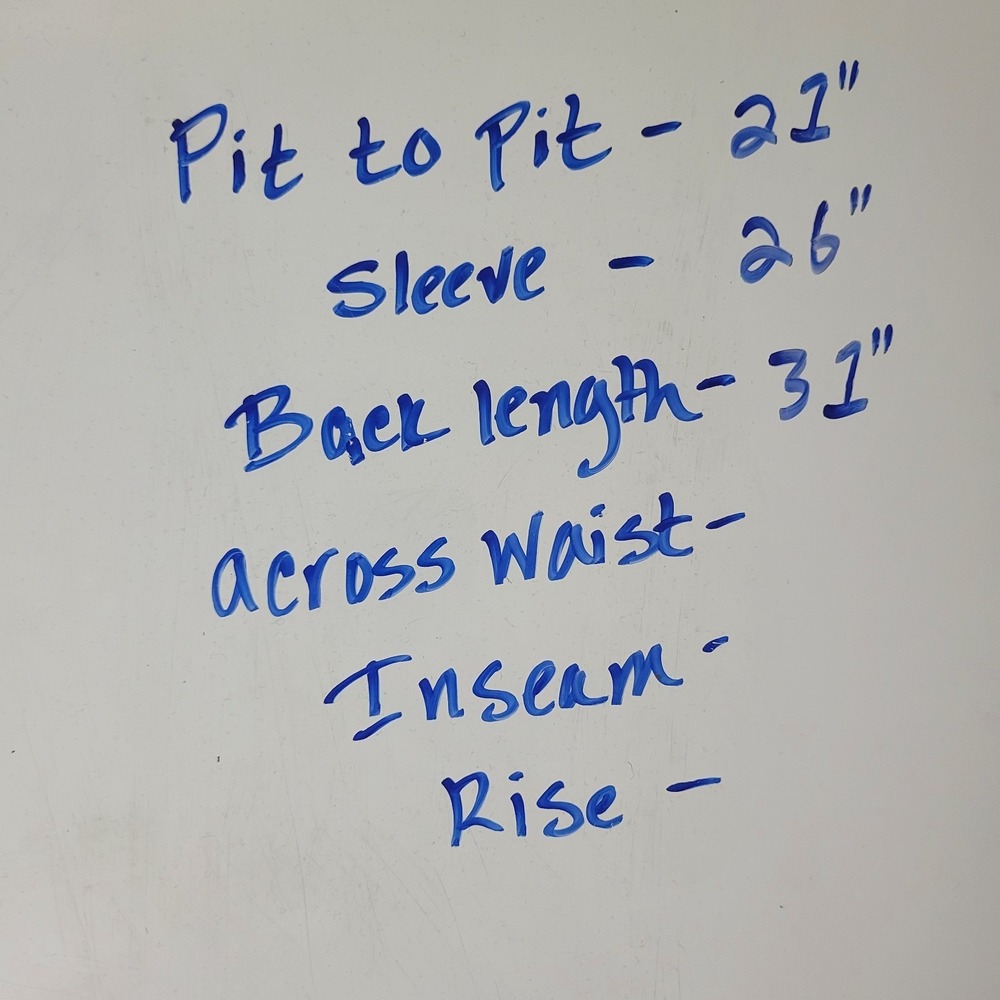 Pit to Pit - 21"
Sleeve - 26"
Back length - 31"
across Waist -
Inseam -
Rise -